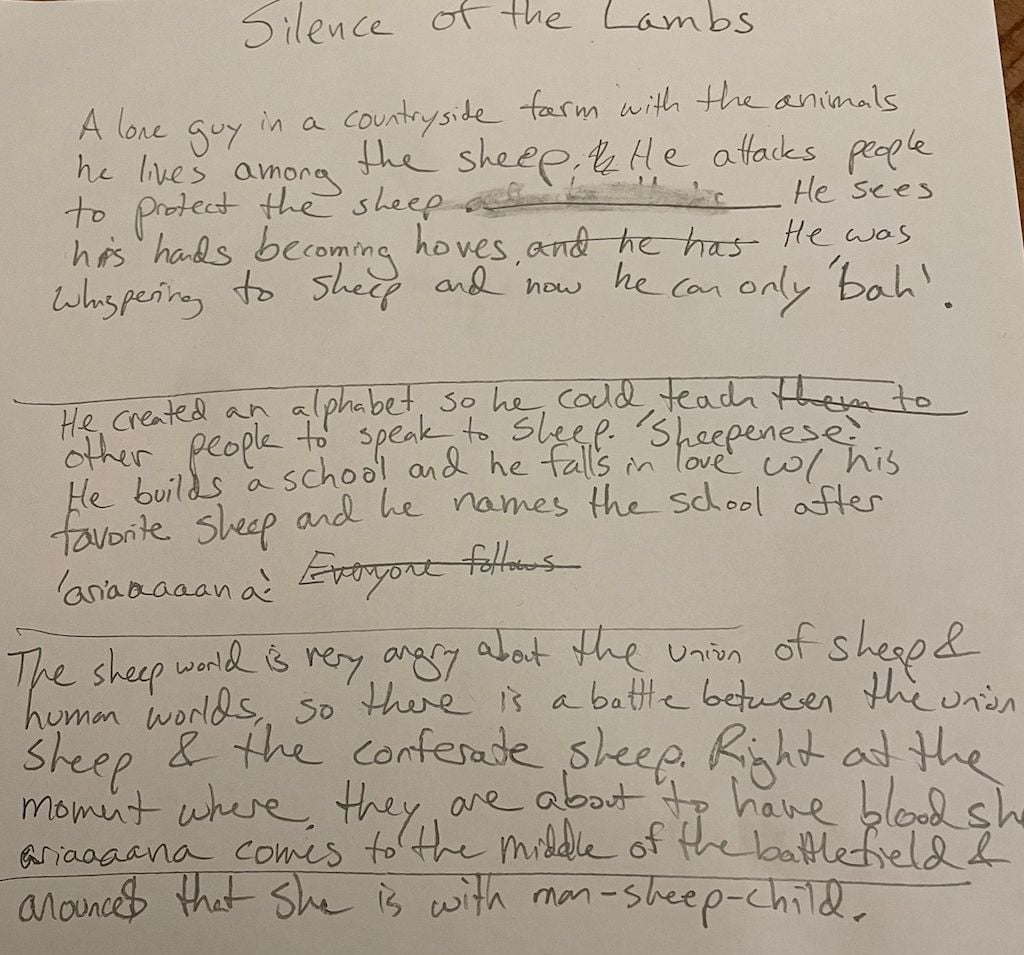 Silence of the Lambs
A lone guy in a countryside farm with the animals
he lives among the sheep. He attacks people
to protect the sheep He sees
his hands becoming hoves, and he has He was
whispering to sheep and now he can only 'bah'.
He created an alphabet so he could teach them to
other people to speak to sheep. 'Sheepenese'.
He builds a school and he falls in love w/ his
favorite sheep and he names the school after
'ariaaaaana'. Everyone follows
The sheep world is very angry about the union of sheep &
human worlds, so there is a battle between the union
sheep & the conferate sheep. Right at the
moment where they are about to have blood she
ariaaaana comes to the middle of the battlefield &
anounces that she is with man-sheep-child.